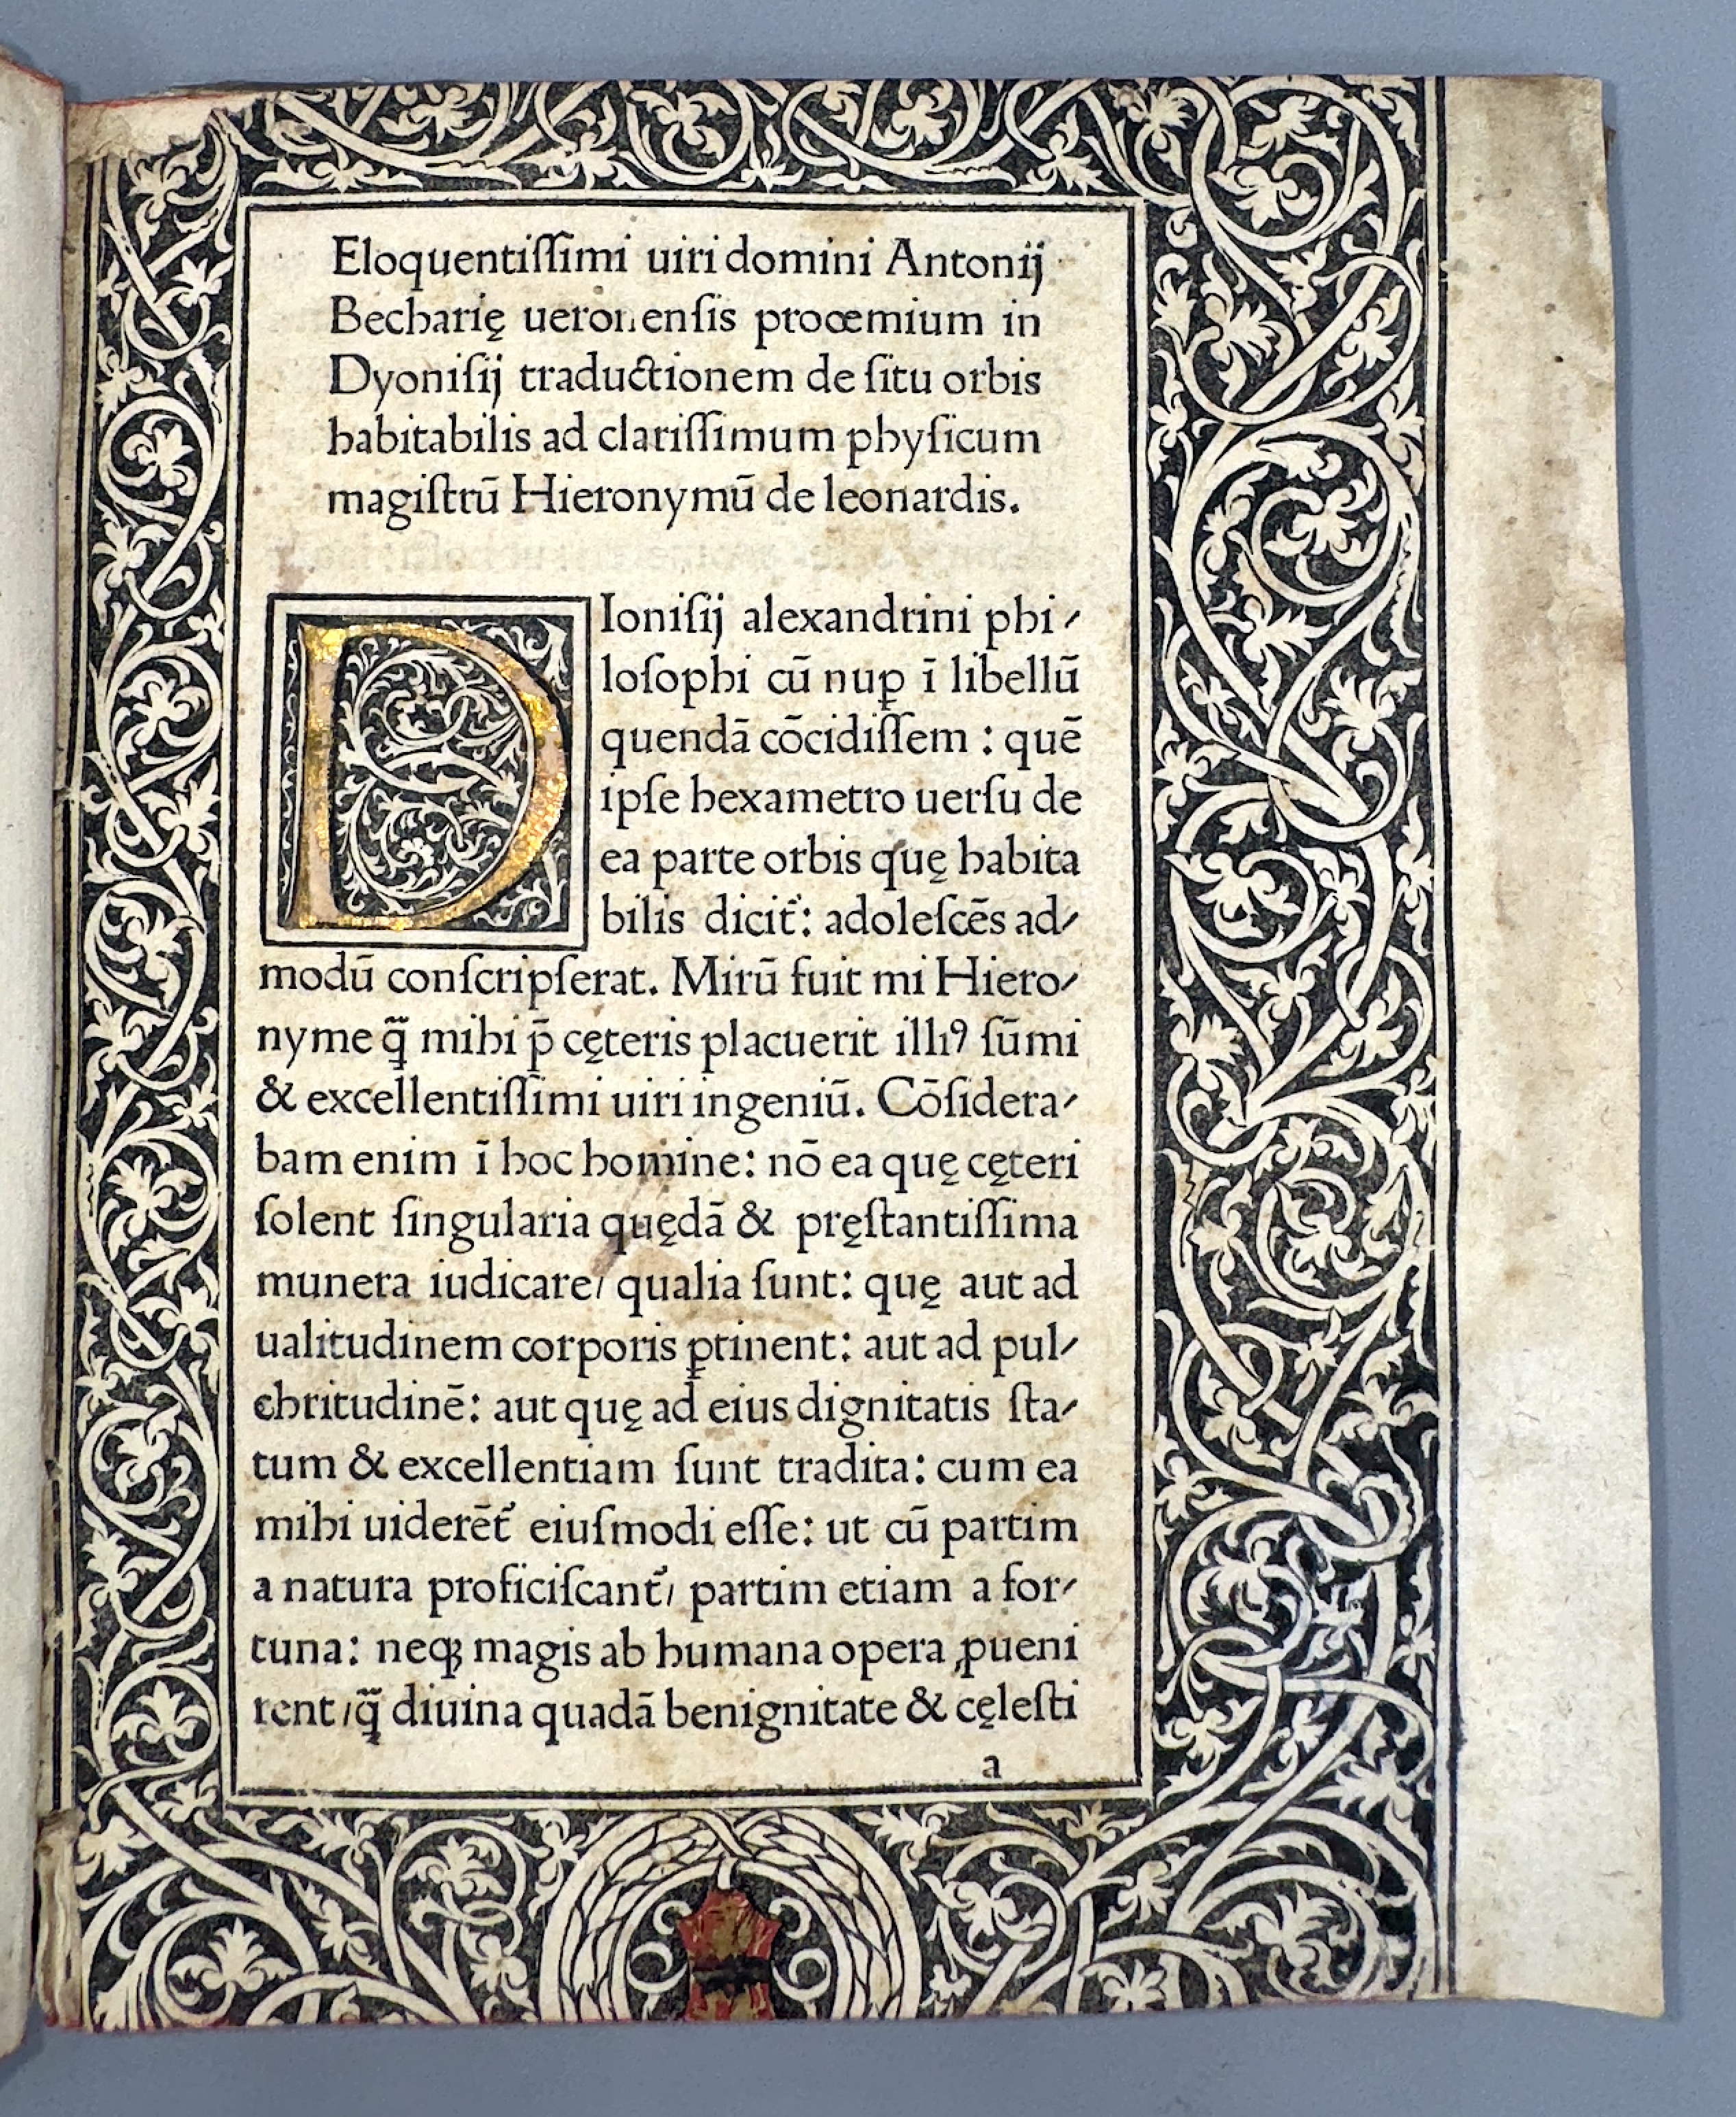 Eloquentiſſimi uiri domini Antonij
Becharię ueronenſis proœmium in
Dyoniſij traductionem de ſitu orbis
habitabilis ad clariſſimum phyſicum
magiſtrū Hieronymū de leonardis.
DIoniſij alexandrini phi⸗
loſophi cū nuꝑ ī libellū
quendā cōcidiſſem : quē
ipſe hexametro uerſu de
ea parte orbis quę habita
bilis dicit᷑: adoleſcēs ad⸗
modū conſcripſerat. Mirū fuit mi Hiero⸗
nyme q̄̃ mihi p̄ cęteris placuerit illiꝰ ſūmi
& excellentiſſimi uiri ingeniū. Cōſidera⸗
bam enim ī hoc homine: nō ea quę cęteri
ſolent ſingularia quędā & pręſtantiſſima
munera iudicare/ qualia ſunt: quę aut ad
ualitudinem corporis ꝑtinent: aut ad pul⸗
chritudinē: aut quę ad eius dignitatis ſta⸗
tum & excellentiam ſunt tradita: cum ea
mihi uiderēt᷑ eiuſmodi eſſe: ut cū partim
a natura proficiſcant᷑/ partim etiam a for⸗
tuna: neqꝫ magis ab humana opera ꝓueni
rent/q̄̃ diuina quadā benignitate & cęleſti
a